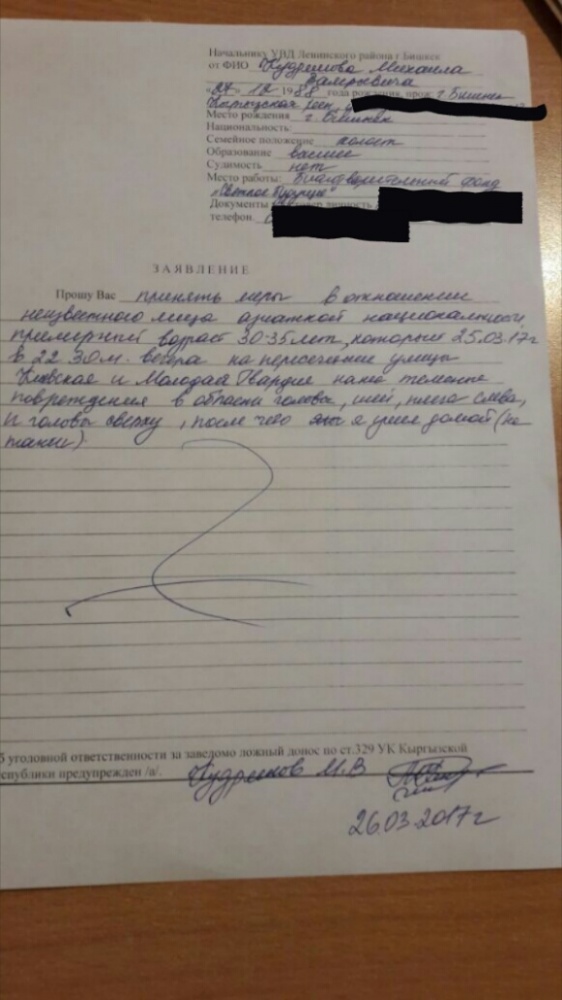 Начальнику УВД Ленинского района г Бишкек
от ФИО Кудряшова Михаила
Валерьевича
«27» 12 1988 года рождения, прож: г Бишкек
Место рождения г. Бишкек
Национальность:
Семейное положение холост
Образование высшее
Судимость нет
Место работы: Благотворительный фонд
"Светлое будущее"
Документы
телефон
ЗАЯВЛЕНИЕ
Прошу Вас принять меры в отношении
неизвестного лица азиатской национальности,
примерный возраст 30-35 лет, который 25.03.17г
в 22 30 м. вечера на пересечение улицы
Киевская и Молодая Гвардия нанес телесные
повреждения в области головы, шеи, слева,
и головы сверху, после чего я ушел домой (на
такси).
уголовной ответственности за заведомо ложный донос по ст.329 УК Кыргызской
предупрежден /а/. М.В
26.03.2017г